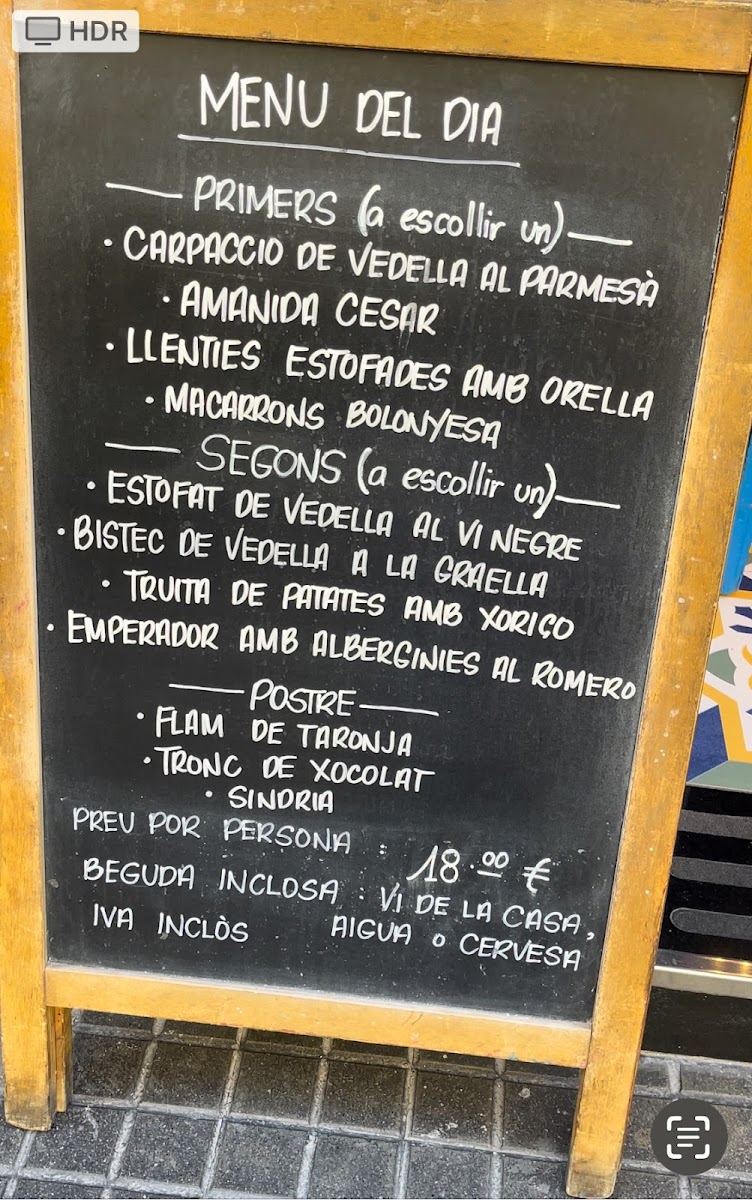 HDR
MENU DEL DIA
PRIMERS (a escollir un)
· CARPACCIO DE VEDELLA AL PARMESÀ
· AMANIDA CESAR
· LLENTIES ESTOFADES AMB ORELLA
· MACARRONS BOLONYESA
SEGONS (a escollir un)
· ESTOFAT DE VEDELLA AL VI NEGRE
· BISTEC DE VEDELLA A LA GRAELLA
· TRUITA DE PATATES AMB XORIÇO
· EMPERADOR AMB ALBERGINIES AL ROMERO
POSTRE
· FLAM DE TARONJA
· TRONC DE XOCOLAT
· SINDRIA
PREU POR PERSONA : 18.00 €
BEGUDA INCLOSA : VI DE LA CASA,
IVA INCLÒS AIGUA O CERVESA